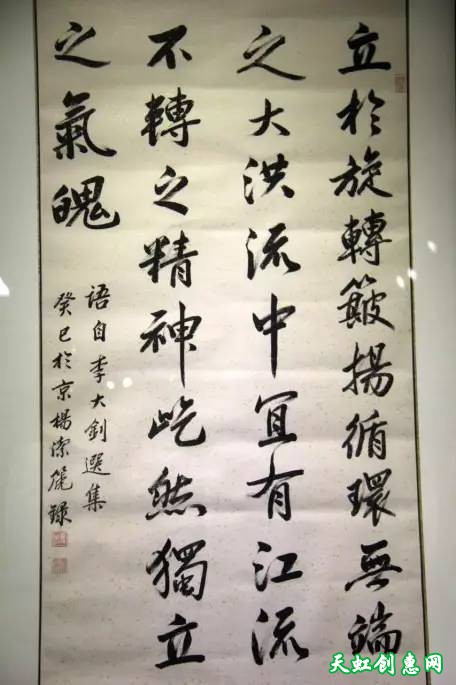 立於旋轉簸揚循環無端
之大洪流中宜有江流
不轉之精神屹然獨立
之氣魄
語自李大釗選集
癸巳於京楊潔篪録
天虹创惠网